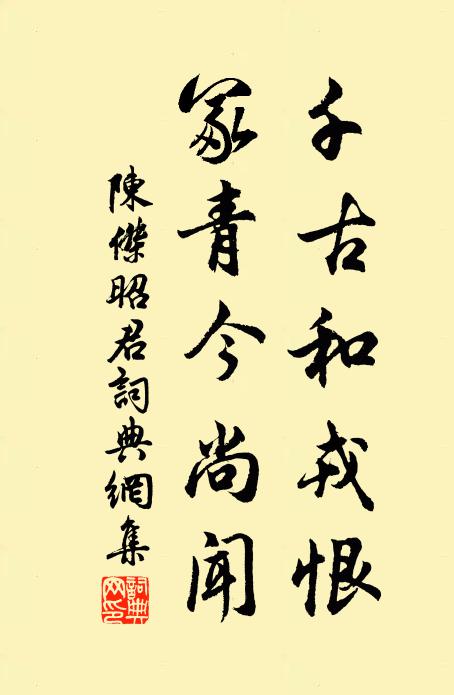 千古和戎恨
冢青今尚闻
陳傑昭君詞典網集
詞典网印